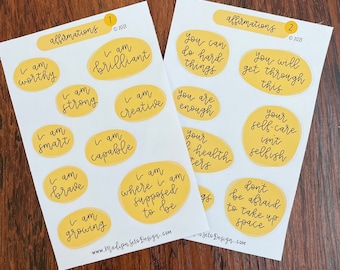 affirmations 1
© 2021
i am
worthy
i am
brilliant
i am
strong
i am
creative
i am
smart
i am
capable
i am
brave
i am
where i am
supposed
to be
i am
growing
affirmations 2
© 2021
You can
do hard
things
You will
get through
this
You are
enough
Your
self-care
isn't
selfish
Your
health
don't
be afraid
to take up
space